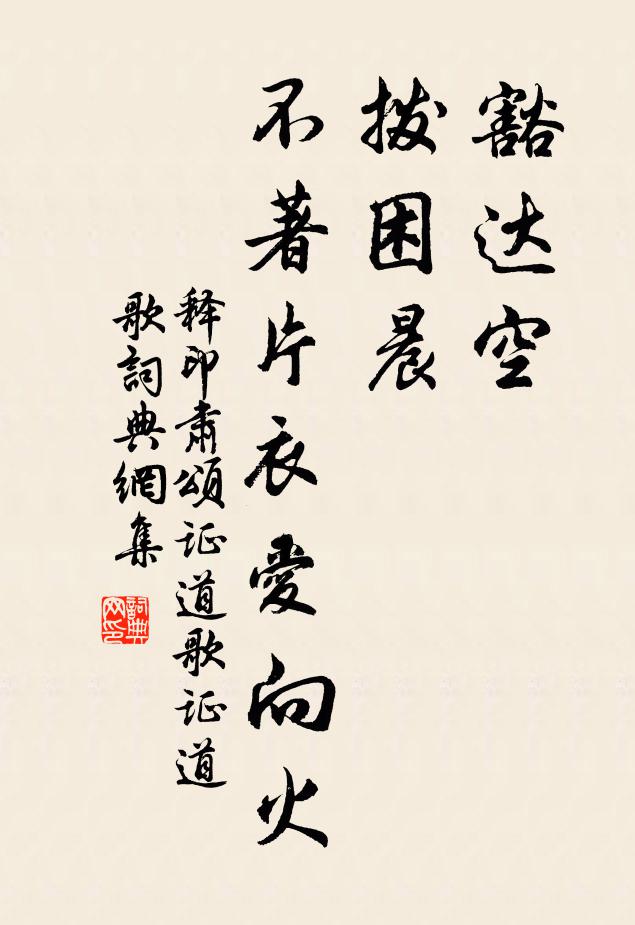 豁达空
拨困晨
不著片衣愛向火
释印肅頌证道歌证道
歌詞典網集
詞典
网印